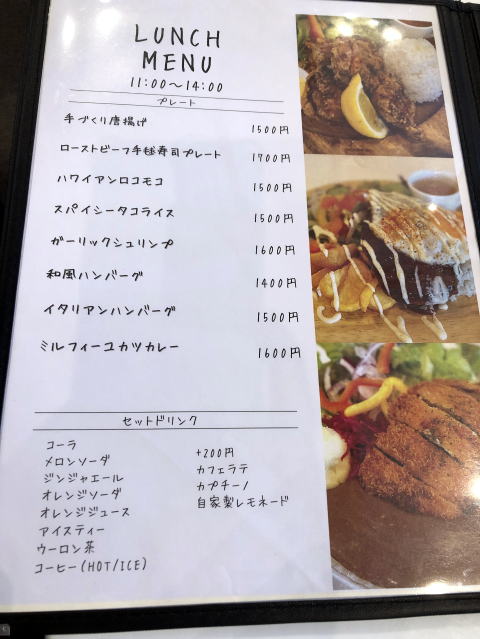 LUNCH
MENU
11:00〜14:00
プレート
手づくり唐揚げ 1500円
ローストビーフ手毬寿司プレート 1700円
ハワイアンロコモコ 1500円
スパイシータコライス 1500円
ガーリックシュリンプ 1600円
和風ハンバーグ 1400円
イタリアンハンバーグ 1500円
ミルフィーユカツカレー 1600円
セットドリンク
コーラ
メロンソーダ
ジンジャエール
オレンジソーダ
オレンジジュース
アイスティー
ウーロン茶
コーヒー(HOT/ICE)
+200円
カフェラテ
カプチーノ
自家製レモネード